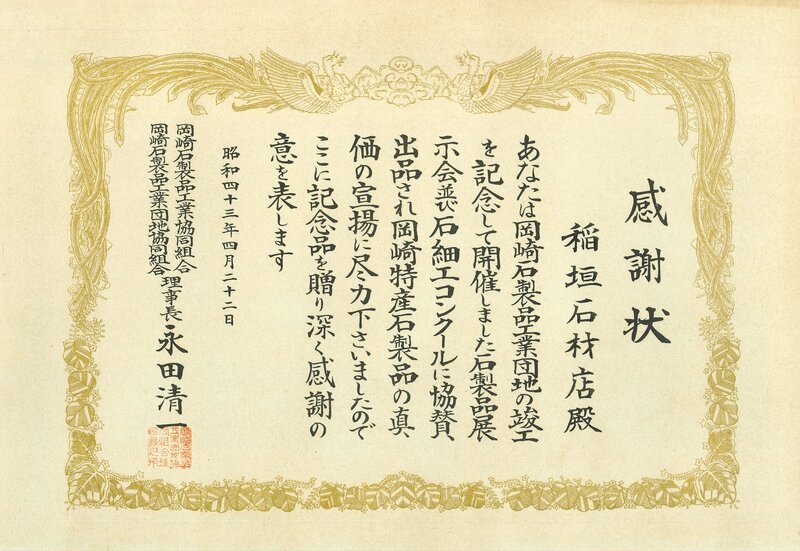 感謝状
稲垣石材店殿
あなたは岡崎石製品工業団地の竣工
を記念して開催しました石製品展
示会並びに石細工コンクールに協賛、
出品され岡崎特産石製品の真
価の宣揚に尽力下さいましたので
ここに記念品を贈り深く感謝の
意を表します
昭和四十三年四月二十二日
岡崎石製品工業協同組合
岡崎石製品工業団地協同組合
理事長 永田清一